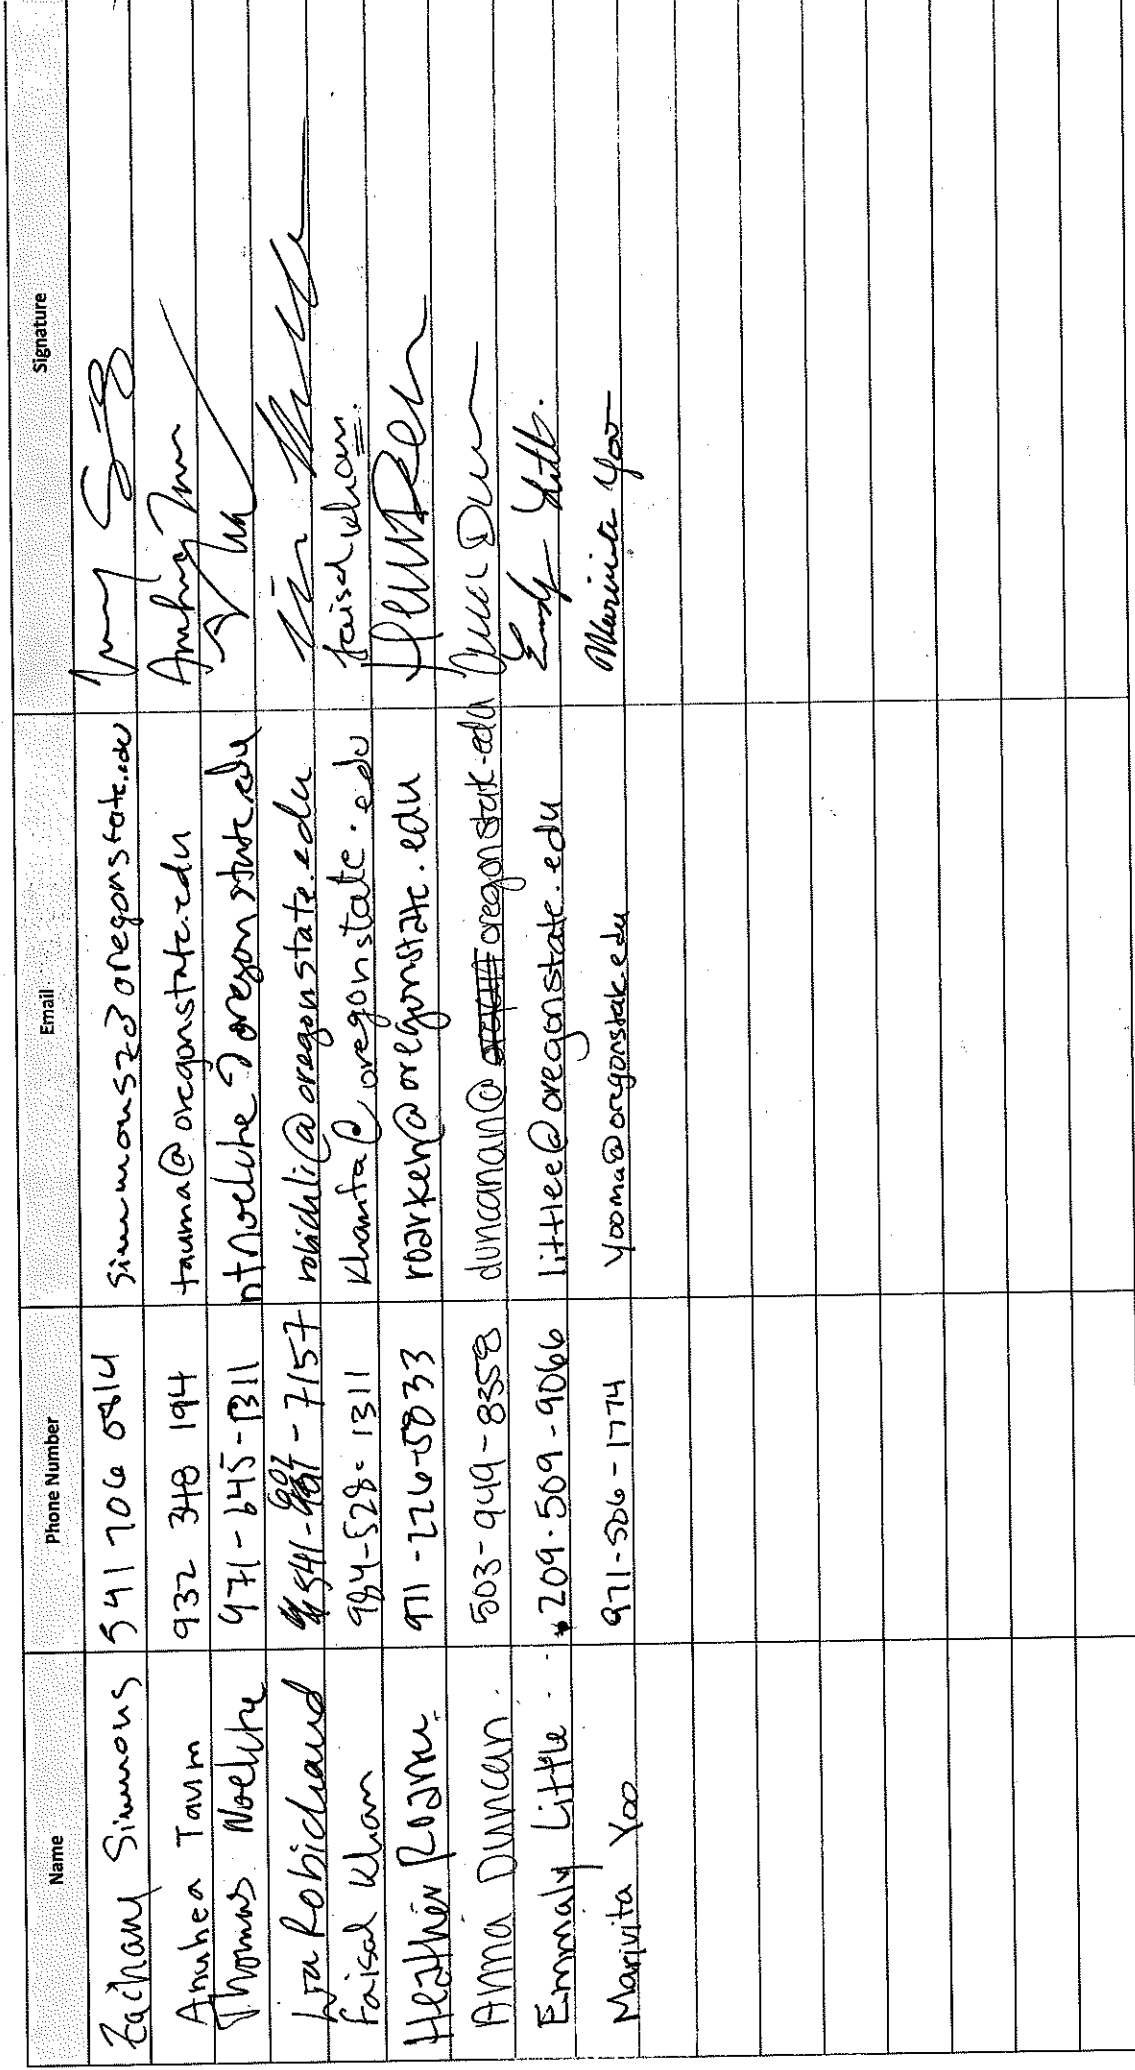 Name Phone Number Email Signature
Zachary Simmons 541 706 0814 simmonsz@oregonstate.edu
Anuhea Taum 932 348 194 tauma@oregonstate.edu
Thomas 971-645-1311 oregonstate.edu
Robichaud 541- -7157 robichli@oregonstate.edu
Faisal Khan 984-528-1311 khanfa@oregonstate.edu faisal khan
Heather 971-226-5033 roarkeh@oregonstate.edu
Anna Duncan 503-949-8358 duncanan@oregonstate.edu
Emmaly Little 209-509-9066 littlee@oregonstate.edu
Marivita Yoo 971-506-1774 yooma@oregonstate.edu Marivita Yoo